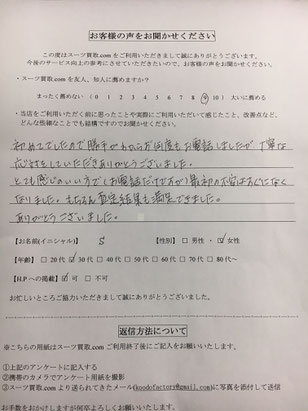 お客様の声をお聞かせください
この度はスーツ買取.comをご利用いただきまして誠にありがとうございます。
今後のサービス向上の参考にさせていただきたいので、お客様の声をお聞かせください
・スーツ買取.comを友人、知人に薦めますか？
まったく薦めない （ 0 1 2 3 4 5 6 7 8 9 10 ） 大いに薦める
・当店をご利用いただく前に思ったことや実際にご利用いただいて感じたこと、改善点など、
どんな些細なことでも結構ですのでお聞かせください。
初めてでしたので勝手がわからず何度もお電話しましたが丁寧な
応対をしていただきありがとうございました。
とても感じのいい方でしたお電話だけですが最初の不安はすぐになく
なりました。もちろん査定結果も満足できました。
ありがとうございました。
【お名前(イニシャル)】 S
【性別】 □ 男性 ・ ☑ 女性
【年齢】 □ 20代 □ 30代 ☑ 40代 □ 50代 □ 60代 □ 70代 □ 80代～
【H.Pへの掲載】 ☑ 可 □ 不可
お忙しいところご協力いただきまして誠にありがとうございました。
返信方法について
※こちらの用紙はスーツ買取.comご利用終了後にご記入をお願いいたします。
①上記のアンケートに記入する
②携帯のカメラでアンケート用紙を撮影
③スーツ買取.comより送られてきたメール(koodofactory@gmail.com)に写真を添付して送信
お手数をおかけしますが何卒よろしくお願いいたします。